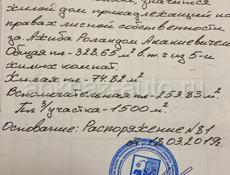 жилой дом принадлежащий на
правах личной собственности
за Ажиба Роландом Акакиевичем
Общая пл- 328.65 м² в.т.ч из 5-и
жилых комнат.
Жилая пл- 74.82 м²
Вспомогательная пл- 253.83 м²
Пл. з/участка- 1500 м²
Основание: Распоряжение №81
03.2017г.